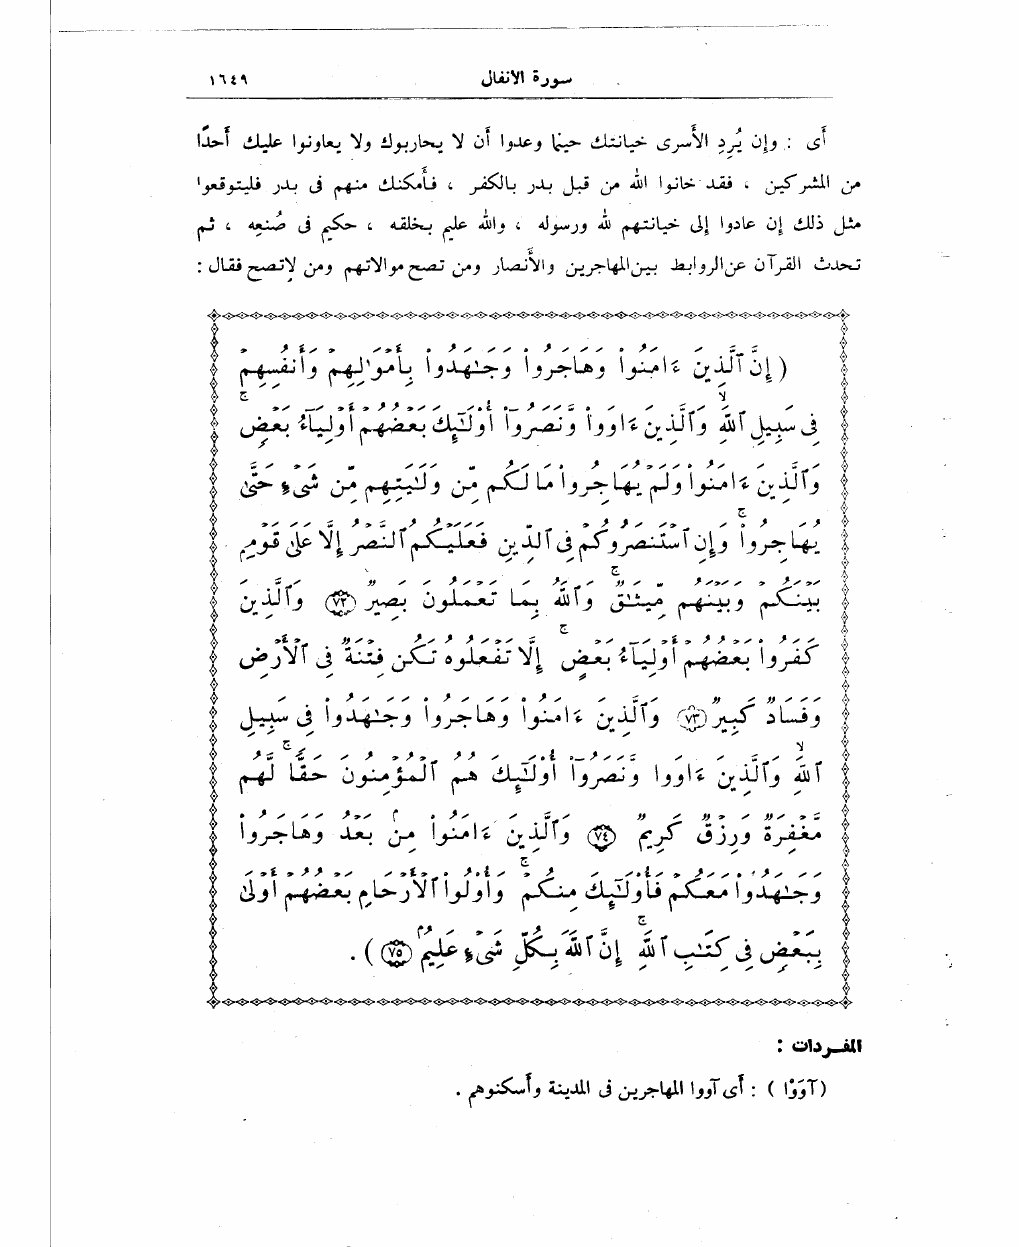 سورة الأنفال ١٦٤٩
أى : وإن يُرِدِ الأسرى خيانتك حينما وعدوا أن لا يحاربوك ولا يعاونوا عليك أحدًا
من المشركين ، فقد خانوا الله من قبل بدر بالكفر ، فأمكنك منهم فى بدر فليتوقعوا
مثل ذلك إن عادوا إلى خيانتهم لله ورسوله ، والله عليم بخلقه ، حكيم فى صُنعِه ، ثم
تحدث القرآن عن الروابط بين المهاجرين والأنصار ومن تصح موالاتهم ومن لاتصح فقال :
( إِنَّ ٱلَّذِينَ ءَامَنُوا۟ وَهَاجَرُوا۟ وَجَـٰهَدُوا۟ بِأَمْوَٰلِهِمْ وَأَنفُسِهِمْ
فِى سَبِيلِ ٱللَّهِ وَٱلَّذِينَ ءَاوَوا۟ وَّنَصَرُوٓا۟ أُو۟لَـٰٓئِكَ بَعْضُهُمْ أَوْلِيَآءُ بَعْضٍ ۚ
وَٱلَّذِينَ ءَامَنُوا۟ وَلَمْ يُهَاجِرُوا۟ مَا لَكُم مِّن وَلَـٰيَتِهِم مِّن شَىْءٍ حَتَّىٰ
يُهَاجِرُوا۟ ۚ وَإِنِ ٱسْتَنصَرُوكُمْ فِى ٱلدِّينِ فَعَلَيْكُمُ ٱلنَّصْرُ إِلَّا عَلَىٰ قَوْمِۭ
بَيْنَكُمْ وَبَيْنَهُم مِّيثَـٰقٌ ۗ وَٱللَّهُ بِمَا تَعْمَلُونَ بَصِيرٌ ٧٢ وَٱلَّذِينَ
كَفَرُوا۟ بَعْضُهُمْ أَوْلِيَآءُ بَعْضٍ ۚ إِلَّا تَفْعَلُوهُ تَكُن فِتْنَةٌ فِى ٱلْأَرْضِ
وَفَسَادٌ كَبِيرٌ ٧٣ وَٱلَّذِينَ ءَامَنُوا۟ وَهَاجَرُوا۟ وَجَـٰهَدُوا۟ فِى سَبِيلِ
ٱللَّهِ وَٱلَّذِينَ ءَاوَوا وَّنَصَرُوٓا۟ أُو۟لَـٰٓئِكَ هُمُ ٱلْمُؤْمِنُونَ حَقًّا ۚ لَّهُم
مَّغْفِرَةٌ وَرِزْقٌ كَرِيمٌ ٧٤ وَٱلَّذِينَ ءَامَنُوا۟ مِنۢ بَعْدُ وَهَاجَرُوا۟
وَجَـٰهَدُوا۟ مَعَكُمْ فَأُو۟لَـٰٓئِكَ مِنكُمْ ۚ وَأُو۟لُوا۟ ٱلْأَرْحَامِ بَعْضُهُمْ أَوْلَىٰ
بِبَعْضٍ فِى كِتَـٰبِ ٱللَّهِ ۗ إِنَّ ٱللَّهَ بِكُلِّ شَىْءٍ عَلِيمٌۢ ٧٥ ) .
المفـردات :
( آوَوْا ) : أى آووا المهاجرين فى المدينة وأسكنوهم .